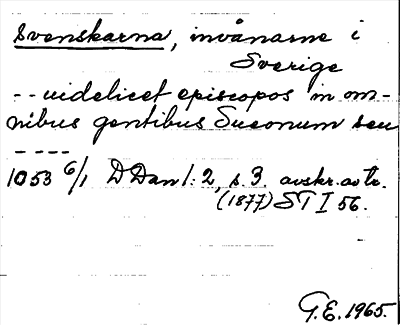 Svenskarna, invånarne i
Sverige
-- uidelicet episcopos in om-
nibus gentibus Sueonum seu
----
1053 6/1 DDan 1:2, s. 3. avskr. av tr.
(1877) ST I 56.
G.E. 1965.